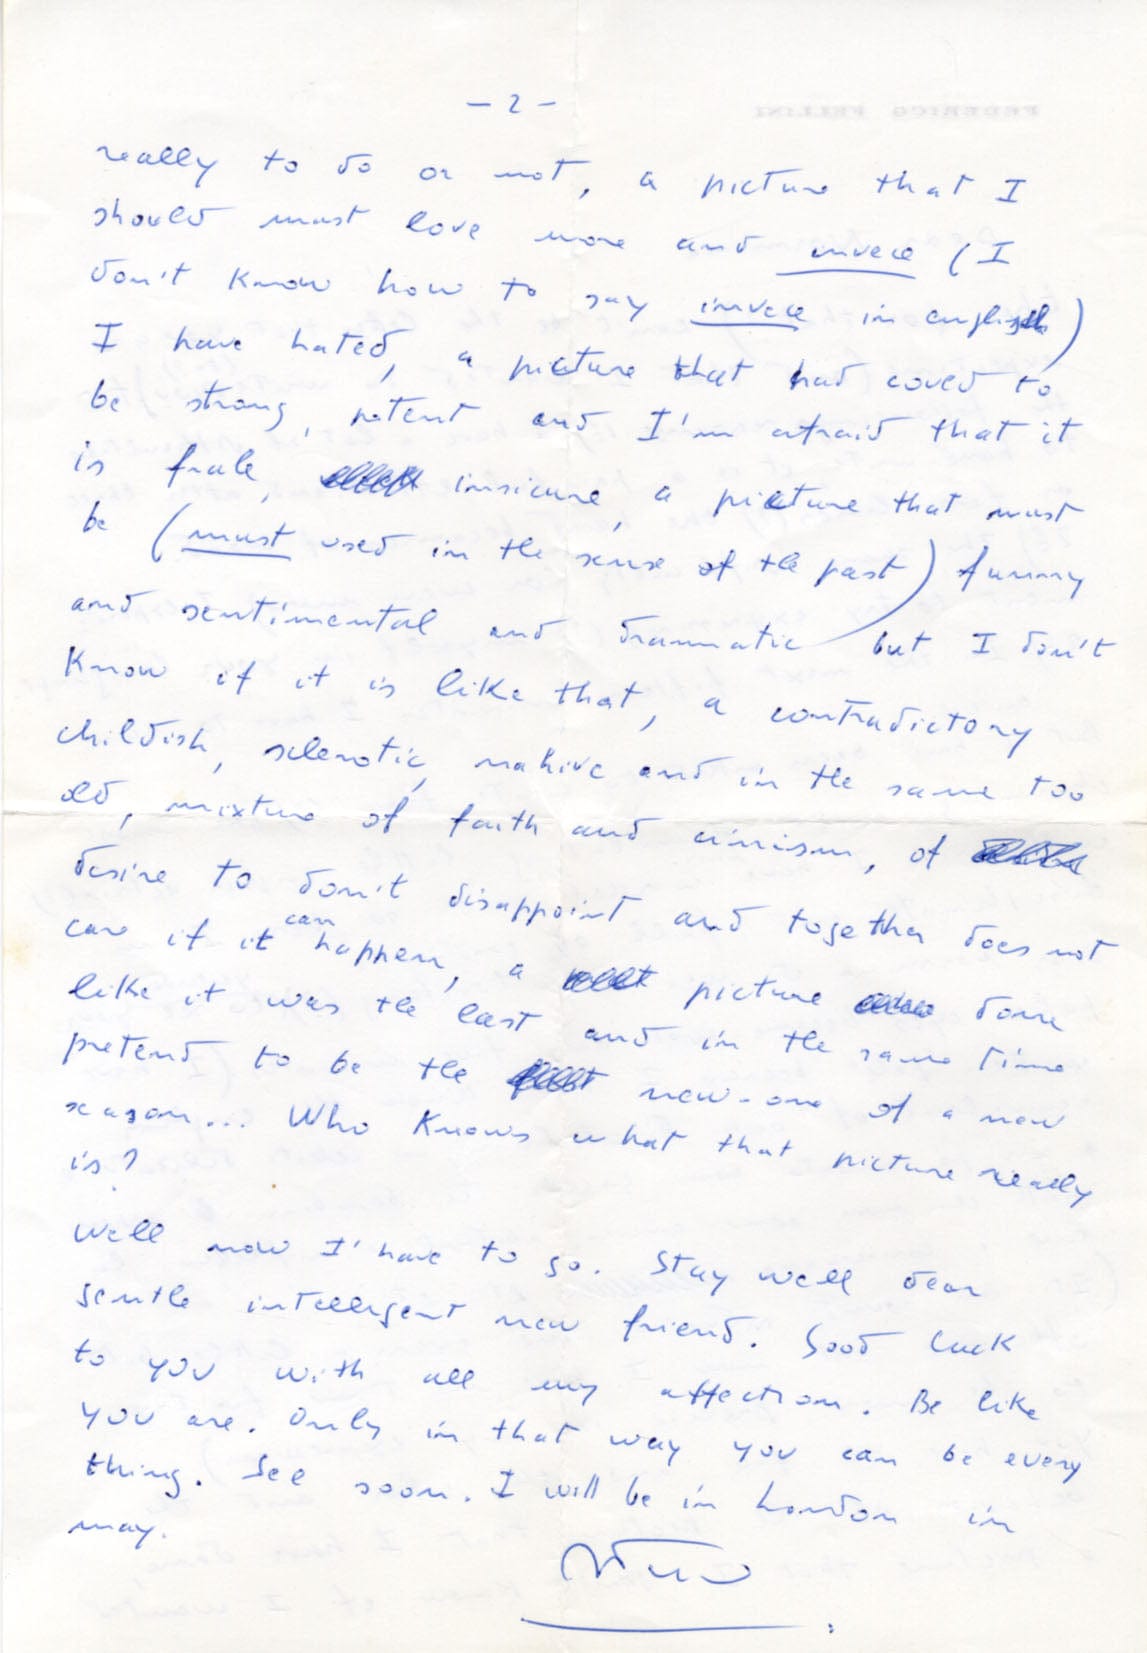 - 2 -
FEDERICO FELLINI
really to do or not, a picture that I
should must love more and invece (I
don't know how to say invece in english)
I have hated, a picture that had coved to
be strong, potent and I'm afraid that it
is frale, insicure, a picture that must
be (must used in the sense of the past) funny
and sentimental and drammatic but I don't
know if it is like that, a contradictory
childish, sclerotic, and in the same too
old, mixture of faith and cinism, of
desire to don't disappoint and together does not
care if it can happen, a picture done
like it was the last and in the same time
pretend to be the new-one of a new
season... Who knows what that picture really
is?
Well now I' have to go. Stay well dear
gentle intelligent new friend. Good luck
to you with all my affection. Be like
you are. Only in that way you can be every
thing. See soon. I will be in London in
may.